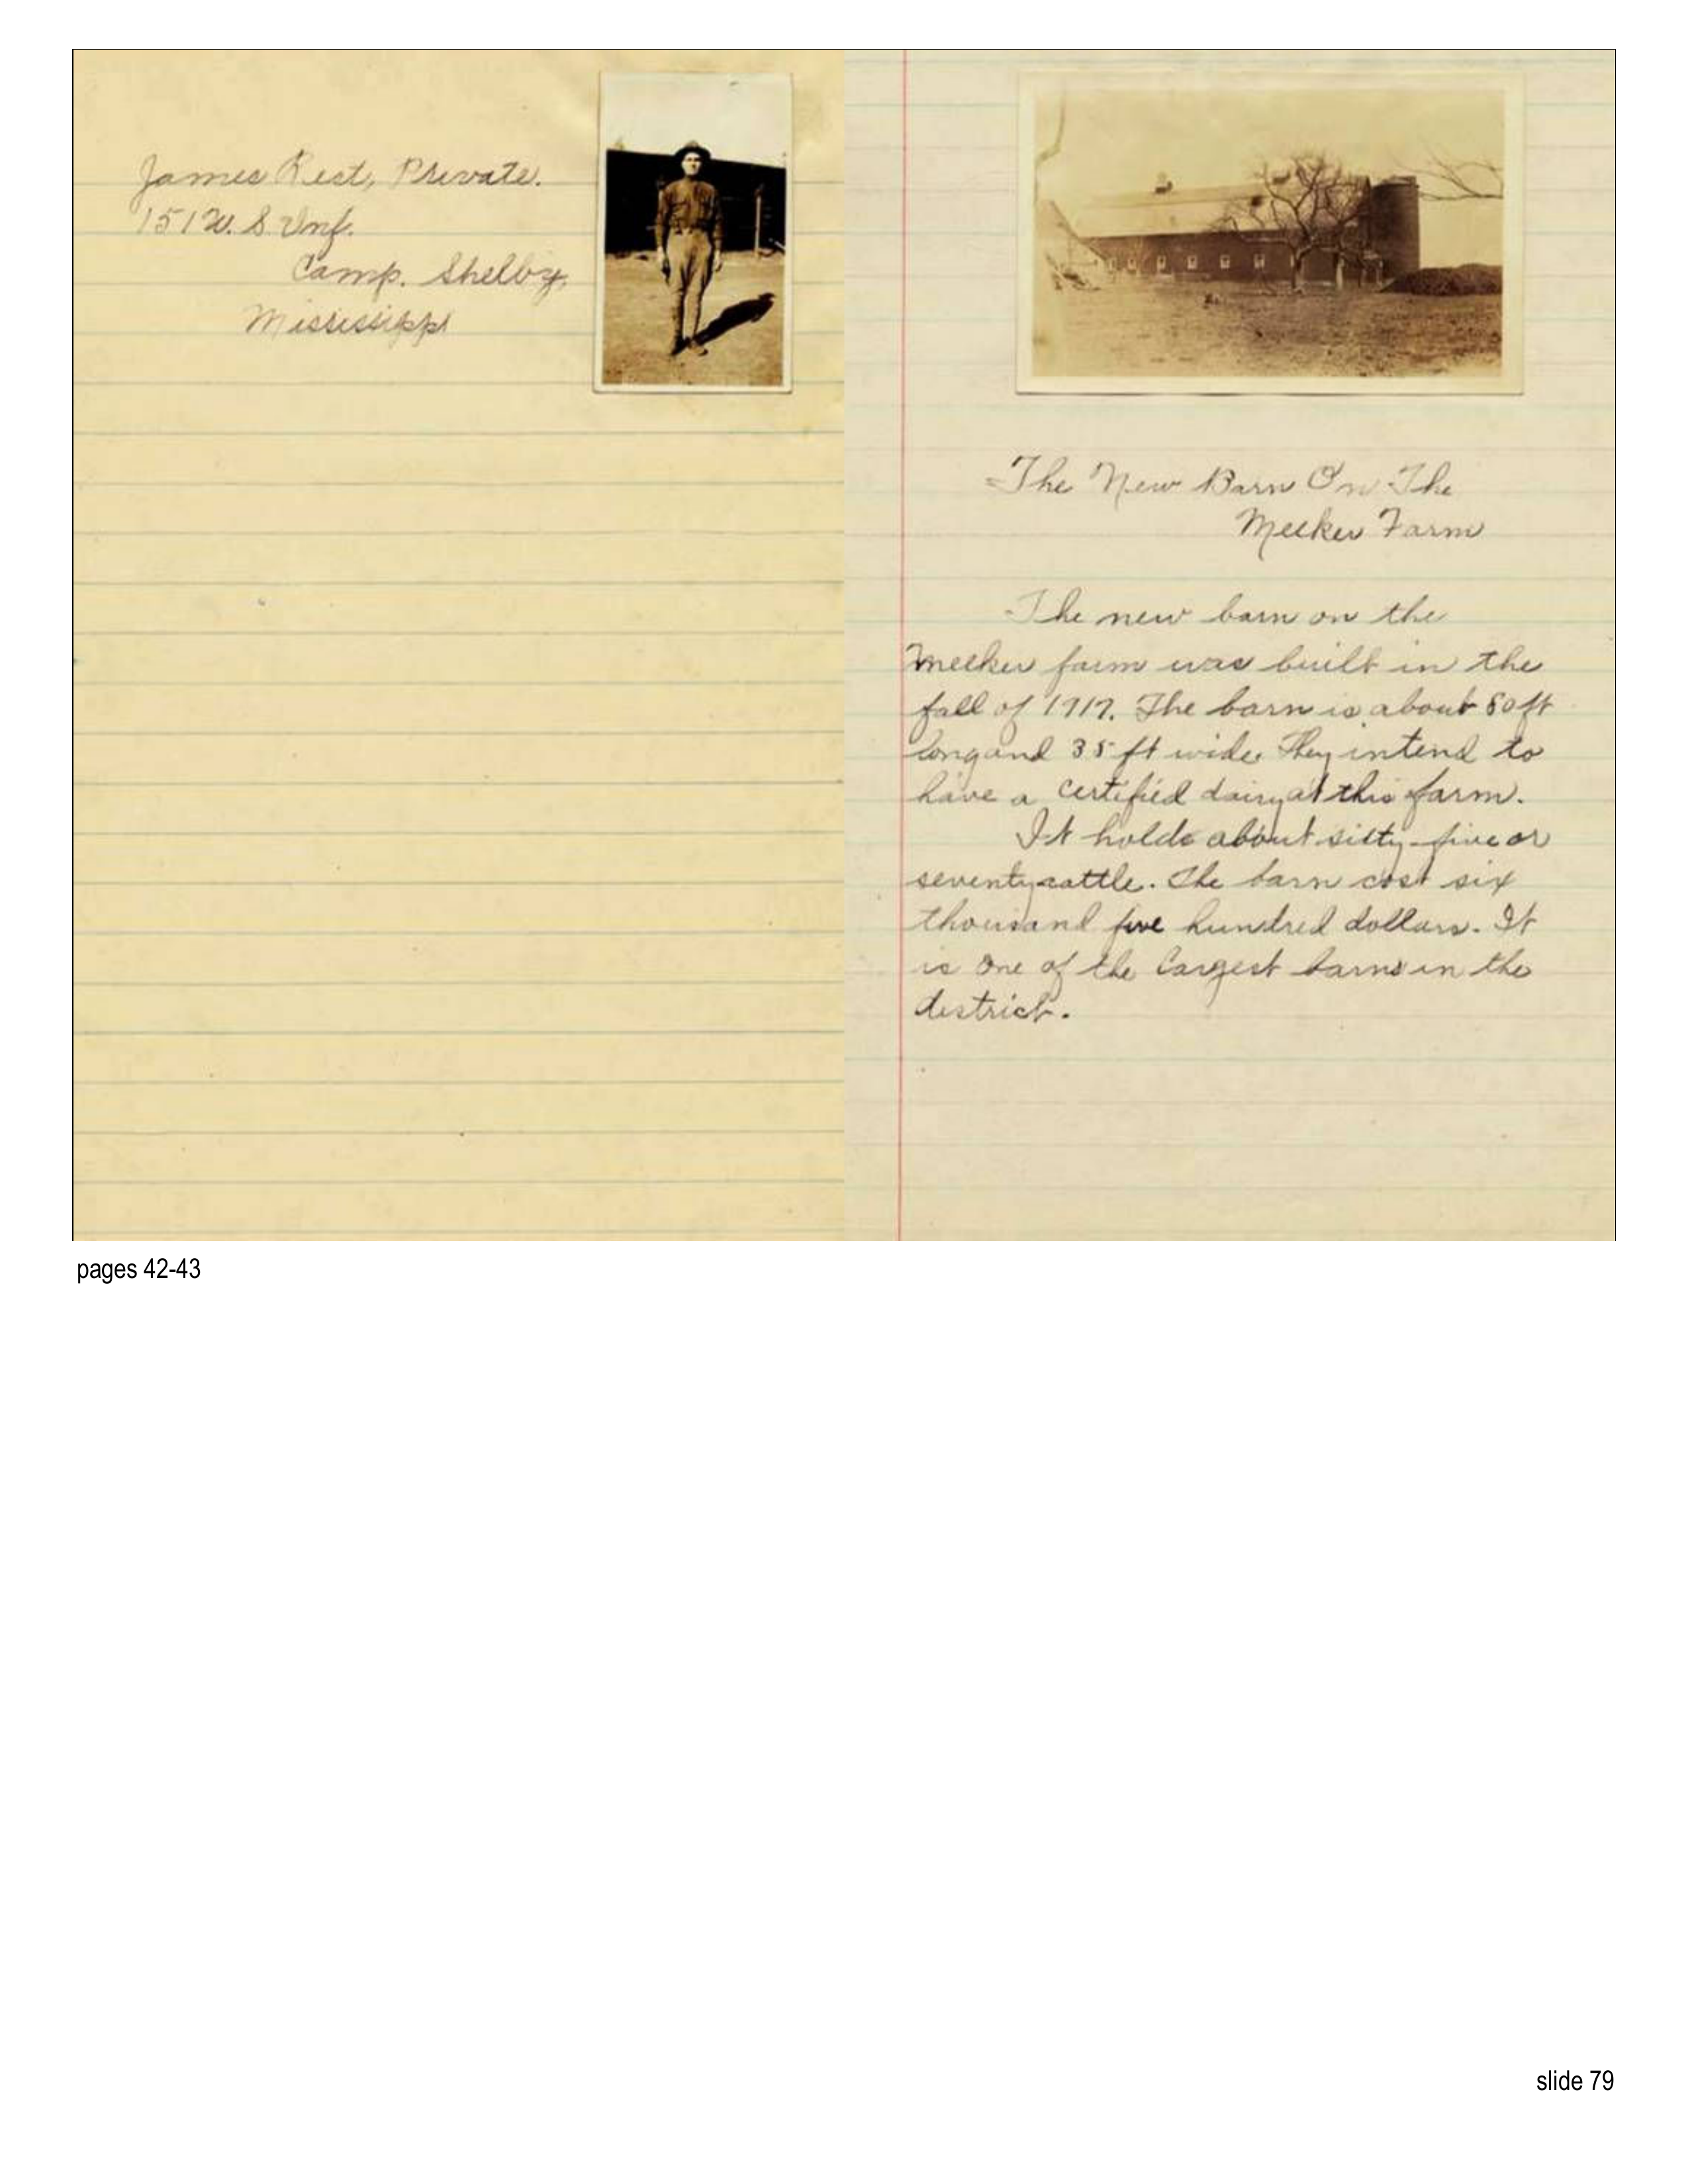 James Rest, Private.
151 U. S. Inf.
Camp. Shelby,
Mississippi
The New Barn On The
Meeker Farm
The new barn on the
Meeker farm was built in the
fall of 1917. The barn is about 80 ft
long and 35 ft wide. They intend to
have a certified dairy at this farm.
It holds about sixty-five or
seventy cattle. The barn cost six
thousand five hundred dollars. It
is one of the largest barns in the
district.
pages 42-43
slide 79